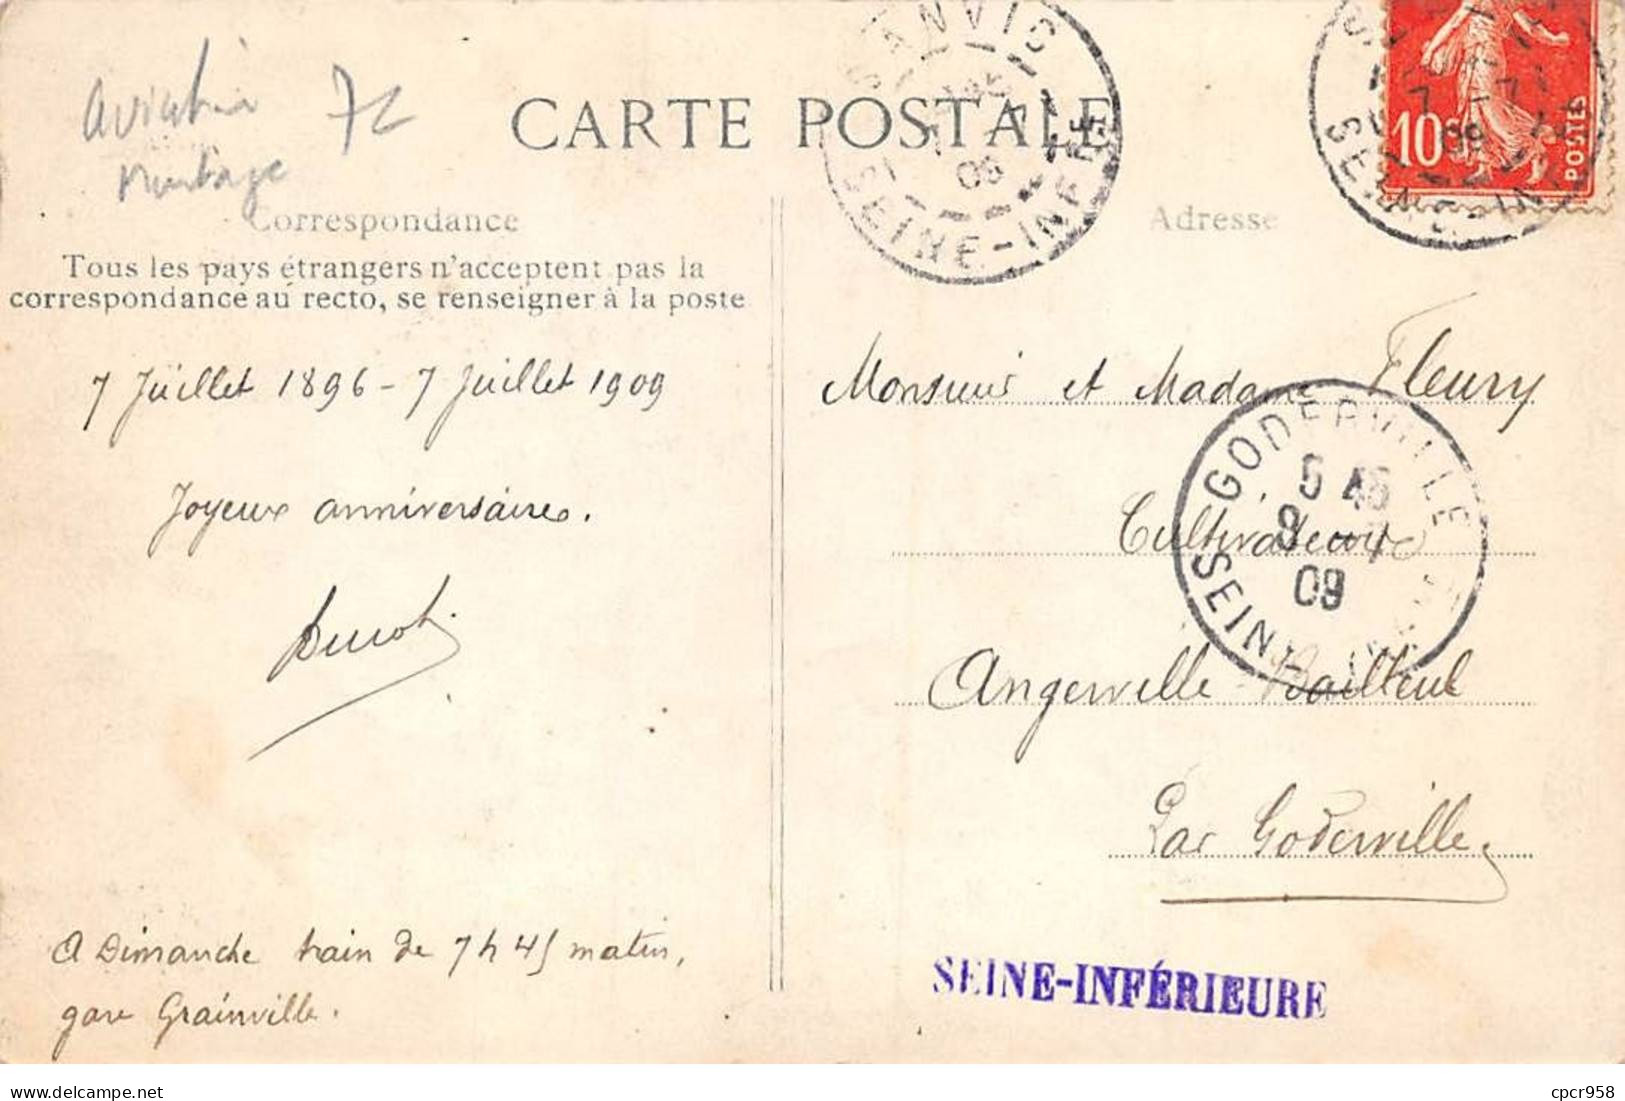 Aviation 7c
Montage
CARTE POSTALE
SANVIC
SEINE-INFRE
09
10c
POSTES
Correspondance
Adresse
Tous les pays étrangers n'acceptent pas la
correspondance au recto, se renseigner à la poste
7 Juillet 1896 - 7 Juillet 1909
Joyeux anniversaire.
Monsieur et Madame Fleury
Cultivateurs
Angerville-Bailleul
Par Goderville.
GODERVILLE
SEINE
9 -7
09
A Dimanche train de 7h45 matin,
gare Grainville.
SEINE-INFÉRIEURE
delcampe.net
cpcr958